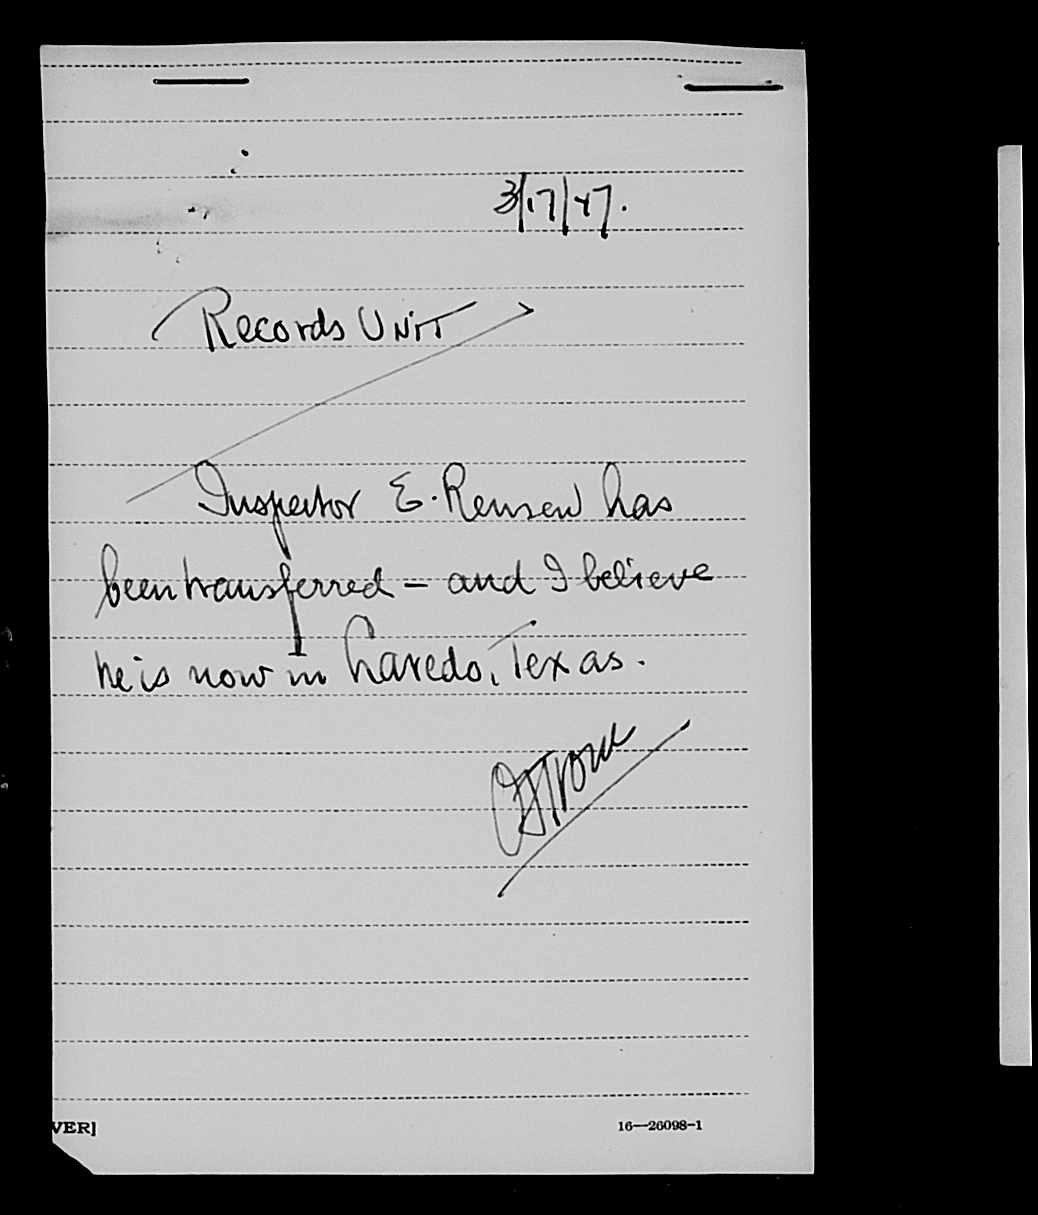 3/17/47.
Records Unit
Inspector E. Remsen has
been transferred – and I believe
he is now in Laredo, Texas.
VER]
16—26098-1